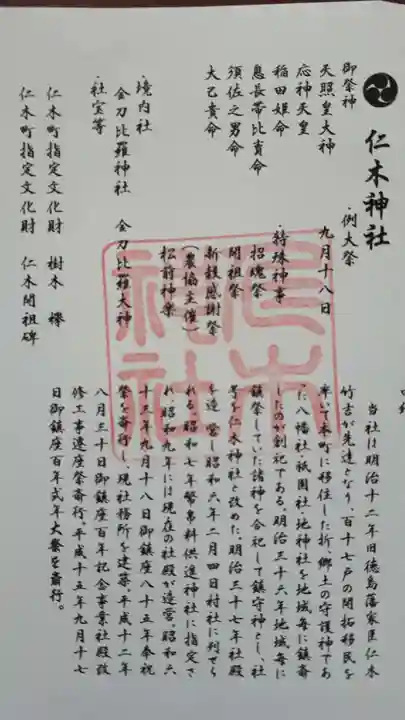 仁木神社
御祭神
天照皇大神
応神天皇
稲田姫命
息長帯比賣命
須佐之男命
大己貴命
・例大祭
九月十八日
・特殊神事
招魂祭
開祖祭
新穀感謝祭
(農協主催)
松前神楽
・境内社
金刀比羅神社 金刀比羅大神
・社宝等
仁木町指定文化財 樹木 欅
仁木町指定文化財 仁木開祖碑
当社は明治十二年旧徳島藩家臣仁木
竹吉が先達となり、百十七戸の開拓移民を
率いて本町に移住した折、郷土の守護神であ
った八幡社・祇園社・地神社を地域毎に鎮斎
したのが創祀である。明治三十六年地域毎に
鎮祭していた諸神を合祀して鎮守神とし、社
号を仁木神社と改めた。明治三十七年社殿
を造営、昭和六年二月四日村社に列せら
れる。昭和七年幣帛料供進神社に指定さ
れ、昭和九年には現在の社殿が造営。昭和六
十三年九月十八日御鎮座八十五年奉祝
祭を斎行し、現社務所を建築。平成十二年
八月三十日御鎮座百年記念事業社殿改
修工事遷座祭斎行。平成十五年九月十七
日御鎮座百年式年大祭を斎行。
仁木神社